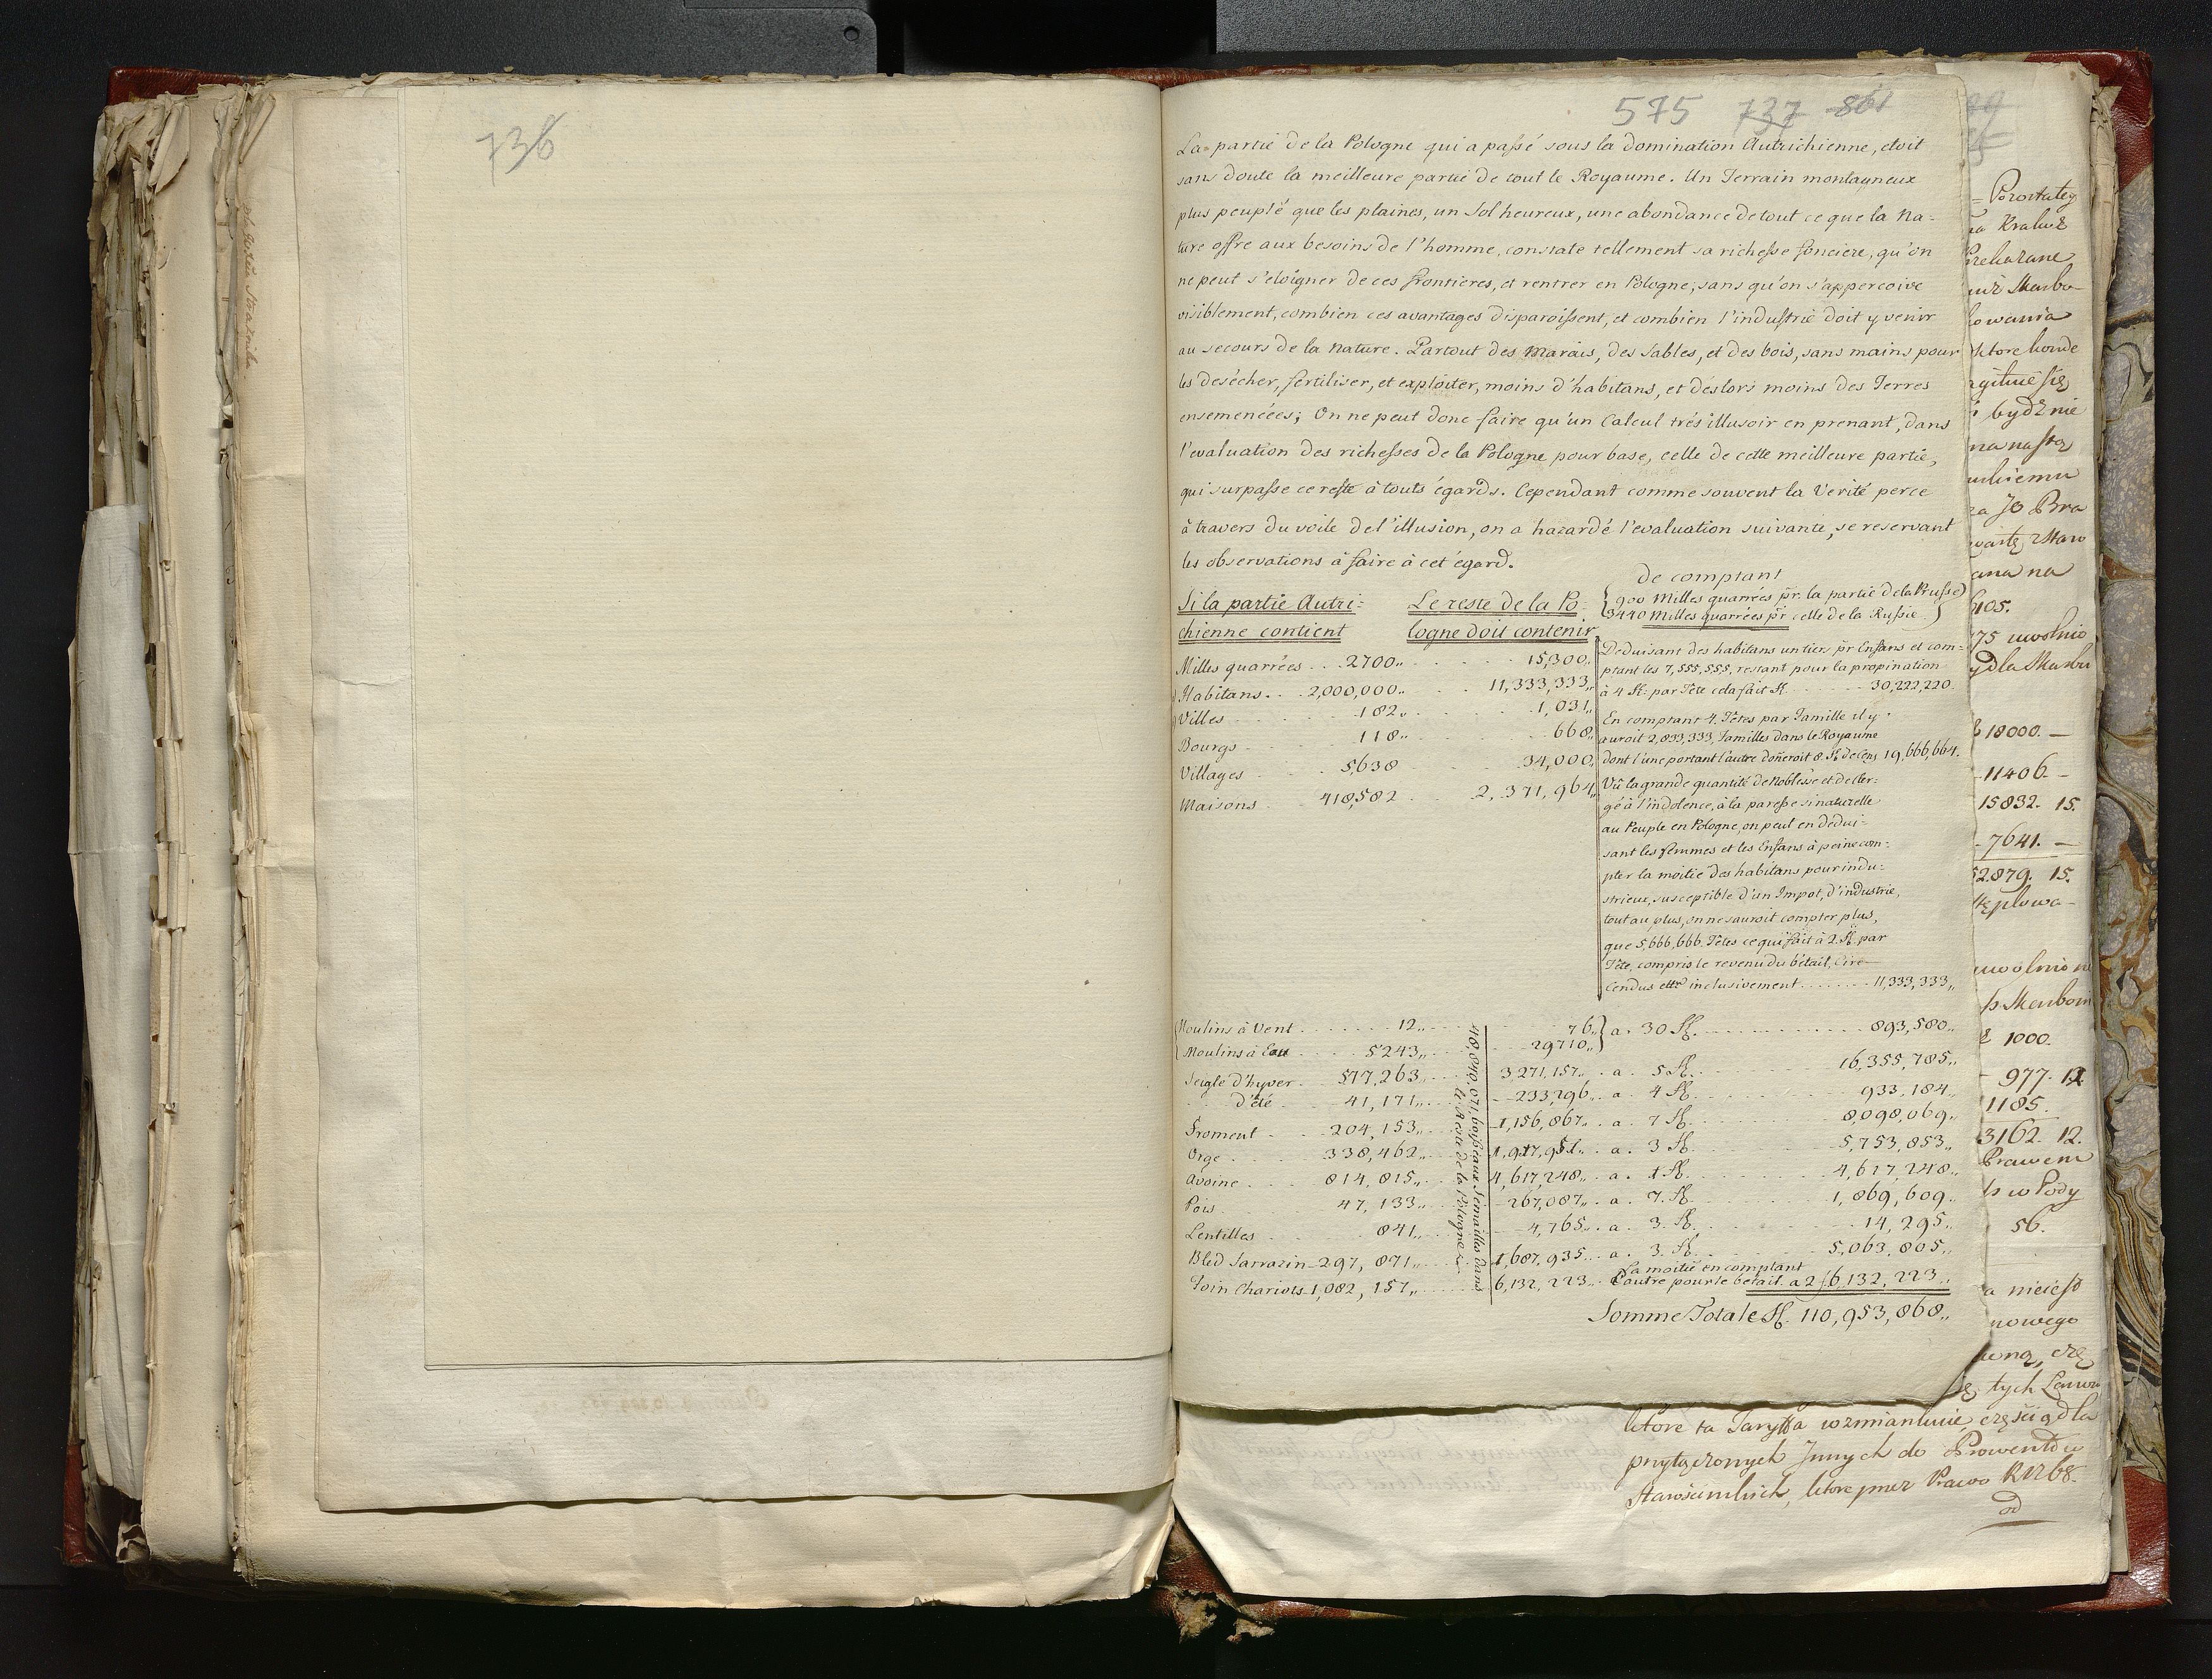 736
575 737 861
La partie de la Pologne qui a passé sous la domination Autrichienne, etoit
sans doute la meilleure partie de tout le Royaume. Un Terrain montagneux
plus peuplé que les plaines, un Sol heureux, une abondance de tout ce que la Na=
ture offre aux besoins de l'homme, constate tellement sa richesse fonciere, qu'on
ne peut s'eloigner de ces frontieres, et rentrer en Pologne, sans qu'on s'appercoive
visiblement, combien ces avantages disparoissent, et combien l'industrie doit y venir
au secours de la Nature. Partout des Marais, des Sables, et des bois, sans mains pour
les desécher, fertiliser, et exploiter, moins d'habitans, et déslors moins des Terres
ensemencées; On ne peut donc faire qu'un Calcul trés illusoir en prenant, dans
l'evaluation des richesses de la Pologne pour base, celle de cette meilleure partie,
qui surpasse ce reste à touts égards. Cependant comme souvent la Verité perce
à travers du voile de l'illusion, on a hazardé l'evaluation suivante, se reservant
les observations à faire à cet égard.
de comptant
Si la partie Autri= Le reste de la Po= {900 Milles quarrées pr. la partie de la Prusse}
chienne contient logne doit contenir {3440 Milles quarrées pr celle de la Russie.}
Milles quarrées . . 2700,, . . . 15,300,,
Habitans . . 2,000,000,, . . 11,333,333,,
Villes . . 182,, . . . 1,031,,
Bourgs . . 118,, . . . 668,,
Villages . . 5,638 . . . 34,000,,
Maisons . . 418,582 . . 2,371,964,,
Deduisant des habitans un tiers pr Enfans et com=
ptant les 7,555,555, restant pour la propination
à 4 fl. par Tête cela fait fl. . . . 30,222,220.
En comptant 4. Têtes par Famille il y
auroit 2,833,333, Familles dans le Royaume
dont l'une portant l'autre donneroit 8. fl. de Cens 19,666,664.
Vû la grande quantité de Noblesse et de Cler=
gé à l'indolence, à la paresse si naturelle
au Peuple en Pologne, on peut en dedui=
sant les femmes et les Enfans à peine com=
pter la moitié des habitans pour indu=
strieux, susceptible d'un Impot, d'industrie,
tout au plus, on ne sauroit compter plus,
que 5,666,666. Têtes ce qui fait à 2. fl. par
Tête, compris le revenu du bétail, Cire
inclusivement . . . . 11,333,333,,
Moulins à Vent . . . 12,, . . . 76,, } a. 30 fl. . . . 893,580,,
Moulins à Eau . . . 5243,, . . . 29710,, }
Seigle d'hyver . . 577,263,, . . 3,271,157,, . a . 5 fl. . . 16,355,785,,
d'été . . 41,171,, . . 233,296 . . a . 4 fl. . . 933,184,,
Froment . . 204,153,, . . 1,156,867,, . a . 7 fl. . . 8,098,069,,
Orge . . 338,462,, . . 1,917,951,, . a . 3 fl. . . 5,753,853,,
Avoine . . 814,815,, . . 4,617,248,, . a . 1 fl. . . 4,617,248,,
Pois . . 47,133,, . . 267,087,, . a . 7. fl. . . 1,869,609,,
Lentilles . . 841,, . . 4,765,, . a . 3. fl. . . 14,295,,
Bled Sarrazin 297,871,, . . 1,687,935 . . a . 3. fl. . . 5,063,805,,
Foin Chariots 1,082,157,, . . 6,132,223 . . La moitié en comptant
l'autre pour le bétail. a 2 fl 6,132,223,,
48,040,071 boisseaux Semailles dans
le Reste de la Pologne
Somme Totale fl. 110,953,868,,
18000. —
11406. —
15832. 15.
7641. —
52879. 15.
1000.
977. 12
1185.
3162. 12.
Prawem
56.
nowego
które ta Taryffa wzmiankuie, częścią dla
przyłączonych Innych do Prowentów
Starościńskich, które przez Prawo R 1768.